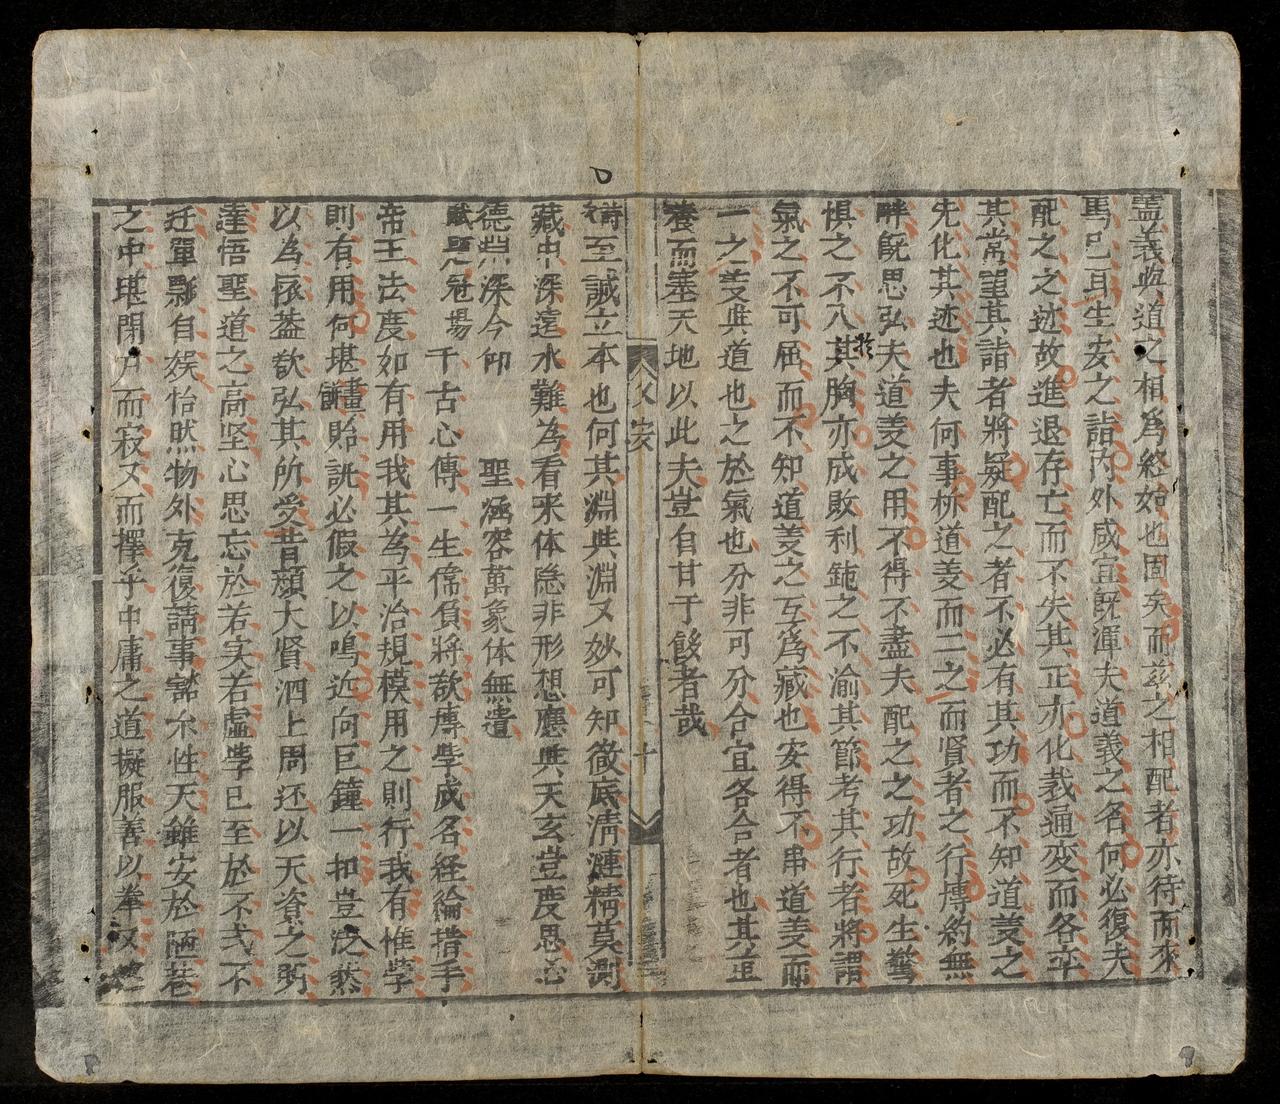 盖義與道之相爲終始也固矣而茲之相配者亦待而來
焉已耳生安之詣内外咸宜旣渾夫道義之名何必復夫
配之之迹故進退存亡而不失其正亦化裁通変而各卒
其常望其詣者將疑配之者不必有其功而不知道义之
先化其迹也夫何事柝道义而二之而賢者之行慱約無
畔旣思弘夫道义之用不得不盡夫配之之功故死生驚
惧之不入於其胸亦成敗利鈍之不渝其節考其行者將謂
氣之不可屈而不知道义之互爲藏也安得不串道义而
一之义與道也之於氣也分非可分合宜各合者也其並
養而塞天地以此夫豈自甘于餒者哉
父安 十
清至誠立本也何其淵與淵又妙可知徹底清漣精莫測
藏中深遠水難為看来体隐非形想應與天玄豈度思
德與深今仰 聖涵容萬象体無遺
賦 冠場 千古心傳一生儋負將欲慱孝成名経綸措手
帝王法度如有用我其為平治規模用之則行我有惟孝
則有用何堪畫餅貽誚必假之以鳴近向巨鐘一扣豈泛然
以為函盖欲弘其所受昔顔大賢泗上周还以天資之
達悟聖道之高坚心思忘於若实若虛孝已至於不弍不
迁單瓢自娱怡然物外克復請事豁尒性天雖安於陋巷
之中堪閉户而寂又而擇乎中庸之道擬服善以拳